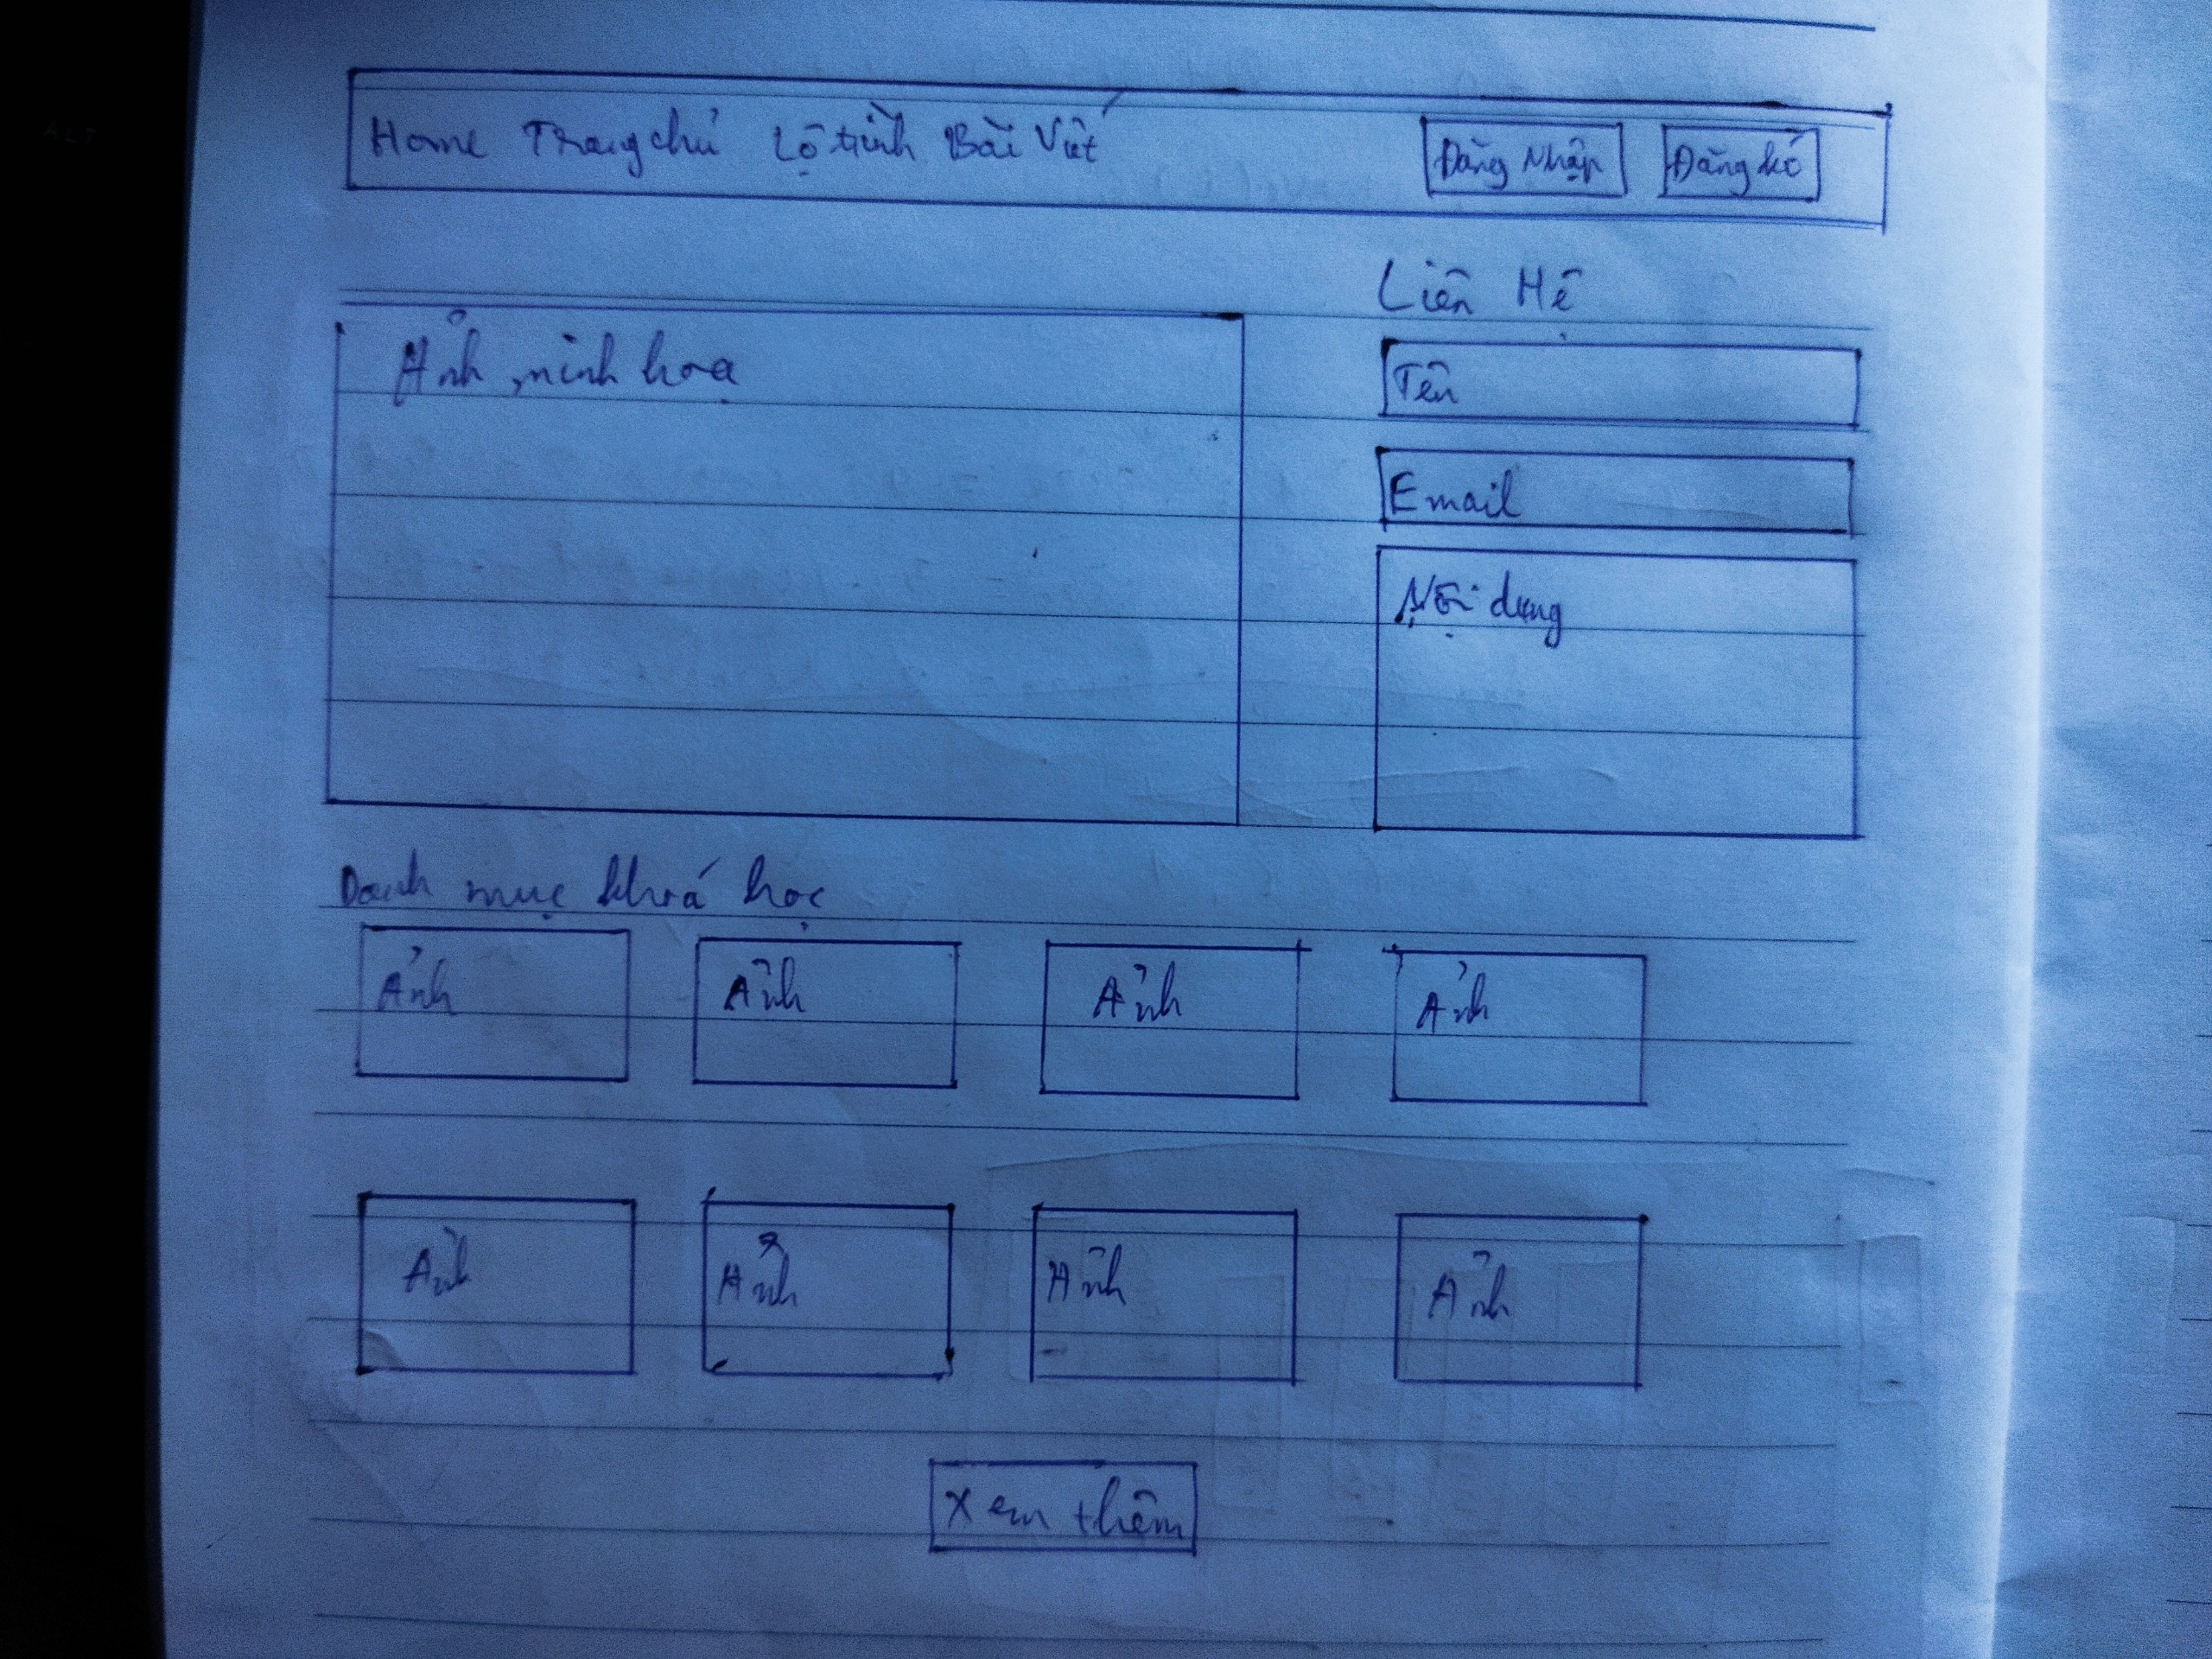 Home Trang chủ Lộ trình Bài Viết Đăng Nhập Đăng kí
Liên Hệ
Ảnh minh hoạ
Tên
Email
Nội dung
Danh mục khoá học
Ảnh Ảnh Ảnh Ảnh
Ảnh Ảnh Ảnh Ảnh
Xem thêm